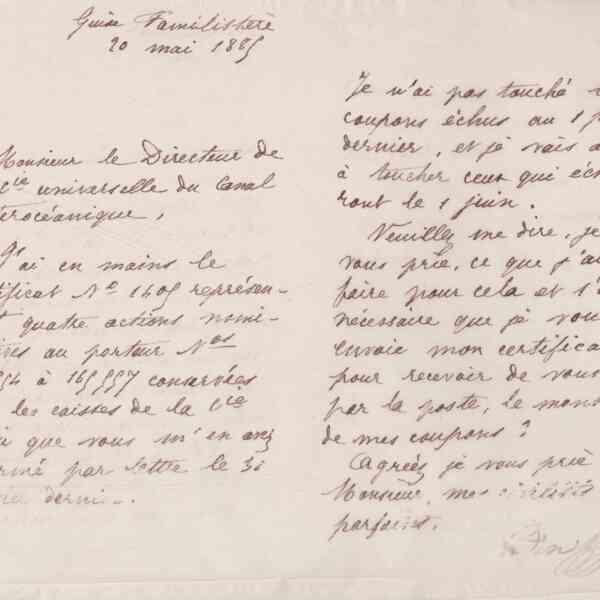 Guise Familistère
20 mai 1885
Monsieur le Directeur de
Cie universelle du Canal
terocéanique,
J'ai en mains le
tificat No 1405 représen-
quatre actions nomi-
ives au porteur Nos
54 à 165557 conservées
les caisses de la Cie
que vous m'en avez
ormé par lettre le 31
derni
Je n'ai pas touché
coupons échus au 1
dernier, et je vais a
à toucher ceux qui éch
ront le 1 juin.
Veuillez me dire, je
vous prie, ce que j'au
faire pour cela et s'
nécessaire que je vou
envoie mon certifica
pour recevoir de vous
par la poste, le mon
de mes coupons?
Agréez je vous prie
Monsieur, mes civilités
parfaites.